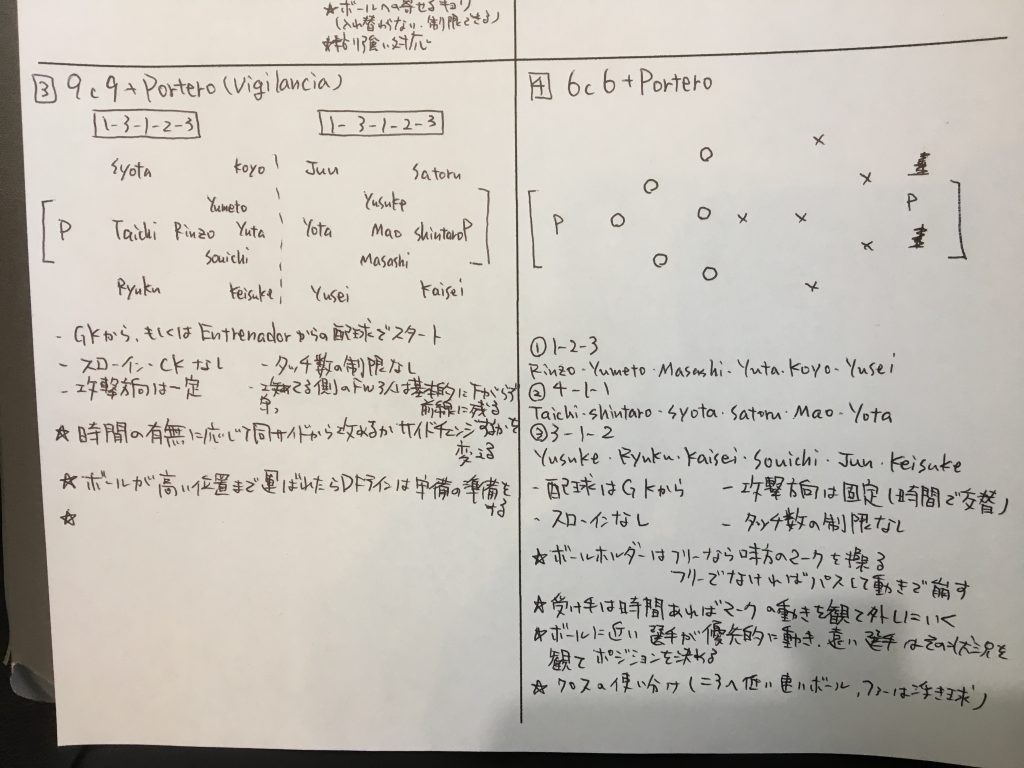 ★ボールへの寄せるキョリ
(入れ替わらない、制限できる)
★粘り強い対応
③ 9c9+Portero(Vigilancia)
1-3-1-2-3 1-3-1-2-3
Syota Koyo Jun Satoru
Yumeto Yusuke
P Taichi Rinzo Yuta Yota Mao Shintaro P
Souichi Masashi
Ryuku Keisuke Yusei Kaisei
- GKから、もしくはEntrenadorからの配球でスタート
- スローイン・CKなし - タッチ数の制限なし
- 攻撃方向は一定 - 攻めてる側のFW3人は基本的に下がらず
前線に残る
★時間の有無に応じて同サイドから攻めるかサイドチェンジするかを
変える
★ボールが高い位置まで運ばれたらDFラインは守備の準備を
する
★
④ 6c6+Portero
P P
①1-2-3
Rinzo・Yumeto・Masashi・Yuta・Koyo・Yusei
②4-1-1
Taichi・Shintaro・Syota・Satoru・Mao・Yota
③3-1-2
Yusuke・Ryuku・Kaisei・Souichi・Jun・Keisuke
- 配球はGKから - 攻撃方向は固定(時間で交替)
- スローインなし - タッチ数の制限なし
★ボールホルダーはフリーなら味方のマークを操る
フリーでなければパスして動きで崩す
★受け手は時間あればマークの動きを観て外しにいく
★ボールに近い選手が優先的に動き、遠い選手はその状況を
観てポジションを決める
★クロスの使い分け(ニアへ低い速いボール、ファーは浮き球)